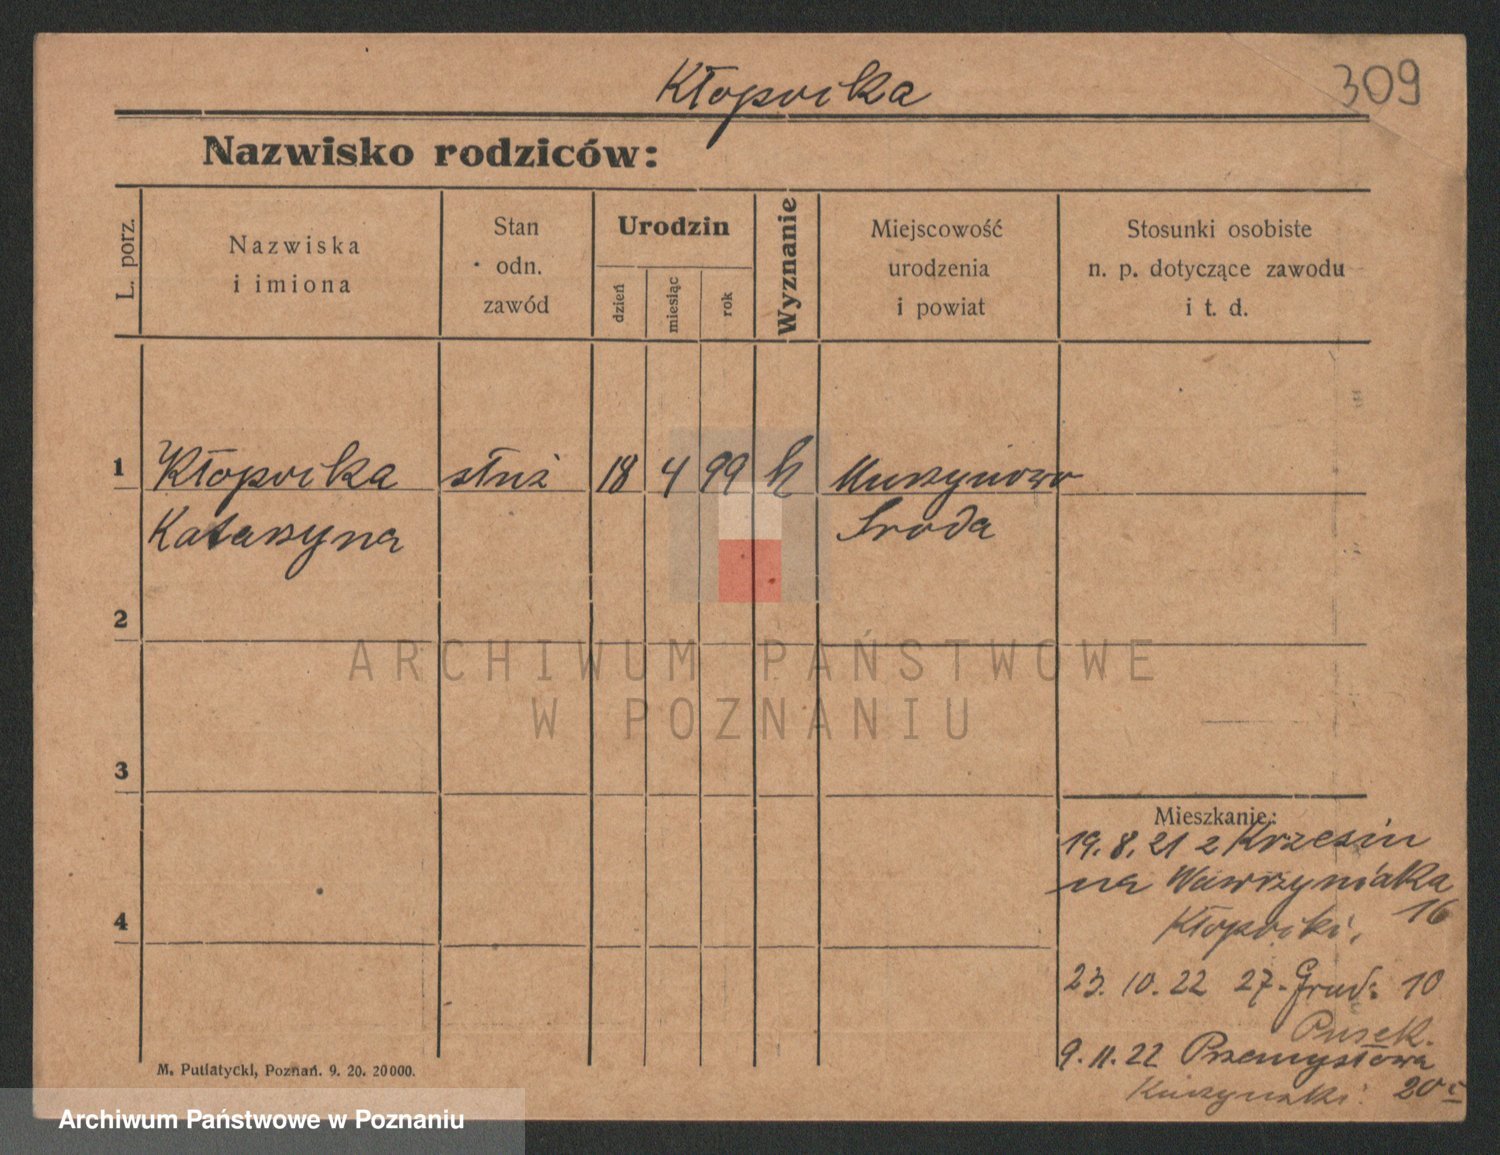 309
Kłopocka
Nazwisko rodziców:
L. porz.
Nazwiska
i imiona
Stan
odn.
zawód
Urodzin
dzień
miesiąc
rok
Wyznanie
Miejscowość
urodzenia
i powiat
Stosunki osobiste
n. p. dotyczące zawodu
i t. d.
1 Kłopocka służ 18 4 99 k Murzynowo
Katarzyna Sroda
2
3
4
Mieszkanie:
19. 8. 21 z Krzesin
na Wawrzyniaka
16
Kłopocki.
23. 10. 22 27. Grud: 10
9. 11. 22 Przemysłowa
20
M. Putiatycki, Poznań. 9. 20. 20000.
ARCHIWUM PAŃSTWOWE
W POZNANIU
Archiwum Państwowe w Poznaniu